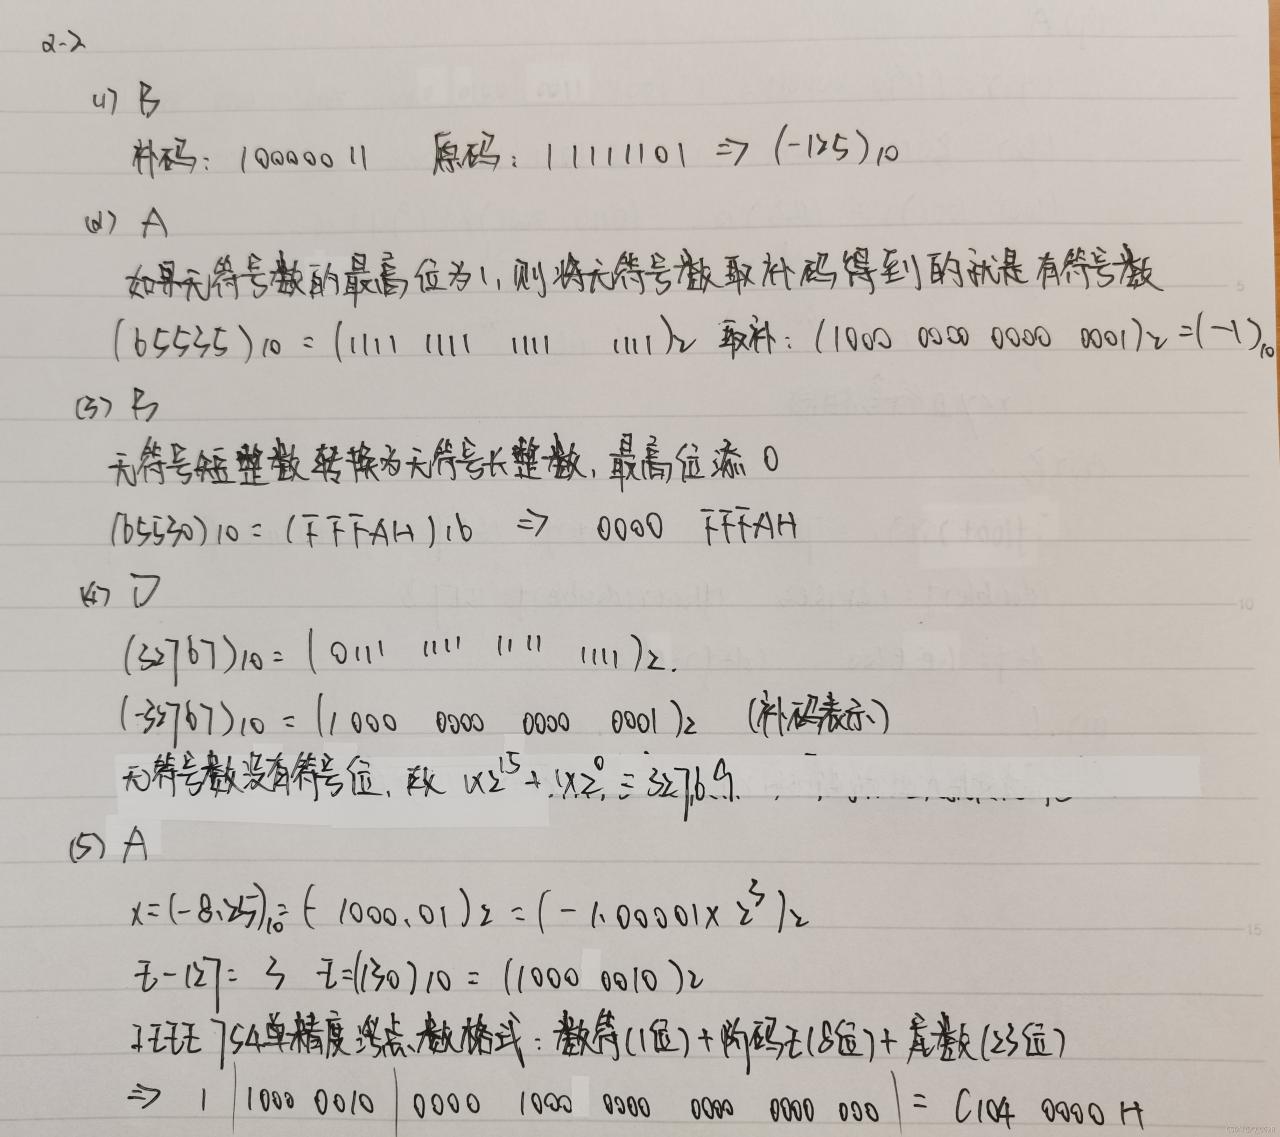 2-2
(1) B
补码: 10000011 原码: 11111101 => (-125)10
(2) A
如果无符号数的最高位为1,则将无符号数取补码得到的就是有符号数
(65535)10 = (1111 1111 1111 1111)2 取补: (1000 0000 0000 0001)2 = (-1)10
(3) B
无符号短整数转换为无符号长整数,最高位添0
(65530)10 = (FFFAH)16 => 0000 FFFAH
(4) D
(32767)10 = (0111 1111 1111 1111)2.
(-32767)10 = (1000 0000 0000 0001)2 (补码表示)
无符号数没有符号位,故 1×2^15 + 1×2^0 = 32769
(5) A
x=(-8.25)10 = (-1000.01)2 = (-1.00001×2^3)2
E-127= 3 E=(130)10 = (1000 0010)2
IEEE 754单精度浮点数格式: 数符(1位)+阶码E(8位)+尾数(23位)
=> 1 | 1000 0010 | 0000 1000 0000 0000 0000 000 | = C104 0000 H